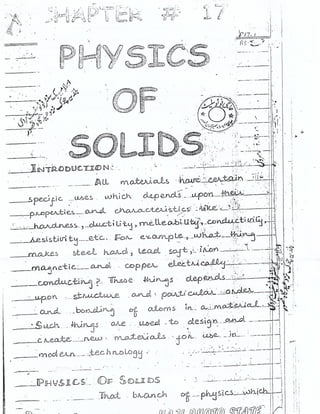 CHAPTER # 17
PHYSICS
OF
SOLIDS
INTRODUCTION:
All materials have certain
specific uses which depends upon their
properties and characteristics like
hardness, ductility, melleability, conductivity,
resistivity etc. For example, what thing
makes steel hard, lead soft, iron
magnetic and copper electrically
conducting? These things depends
upon structure and particular order
and bonding of atoms in a material.
Such things are used to design and
create new materials for use in
modern technology.
PHYSICS OF SOLIDS
That branch of physics which